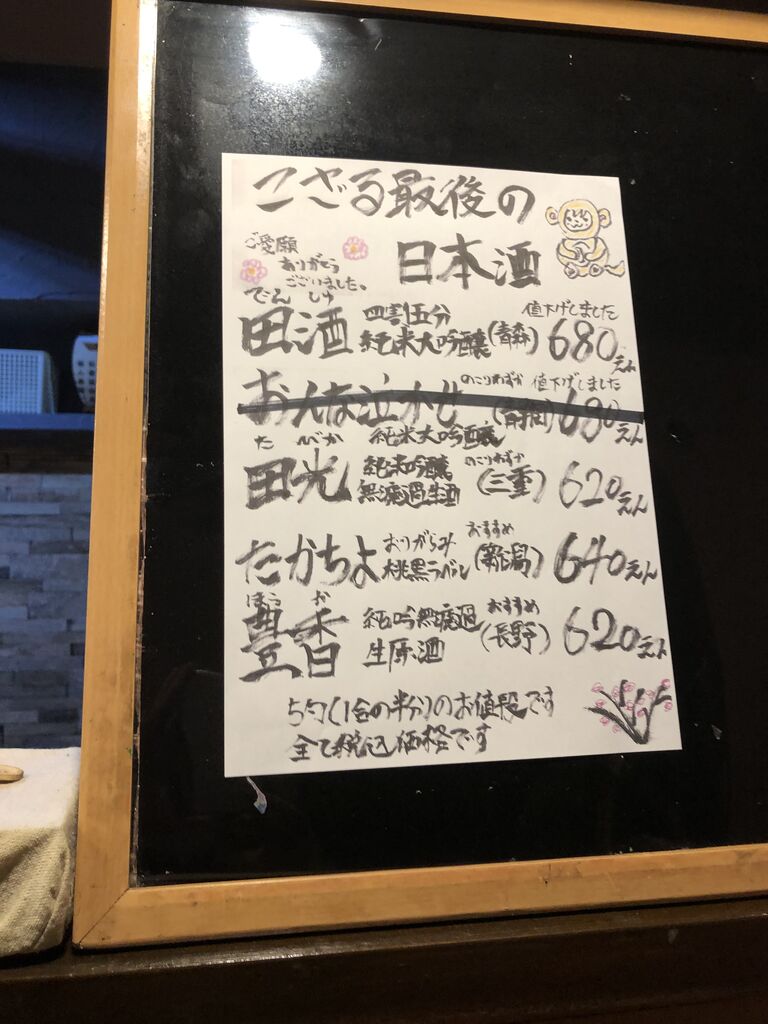 こざる最後の
日本酒
ご愛願
ありがとう
ございました。
でん しゅ
値下げしました
田酒 四割五分 純米大吟醸 (青森) 680えん
のこりわずか 値下げしました
おんな泣かせ 純米大吟醸 (静岡) 680えん
た びか
のこりわずか
田光 純米吟醸 無濾過生酒 (三重) 620えん
おすすめ
たかちよ おりがらみ 桃黒ラベル (新潟) 640えん
ほう か
おすすめ
豊香 純吟無濾過 生原酒 (長野) 620えん
5勺(1合の半分)のお値段です
全て税込価格です